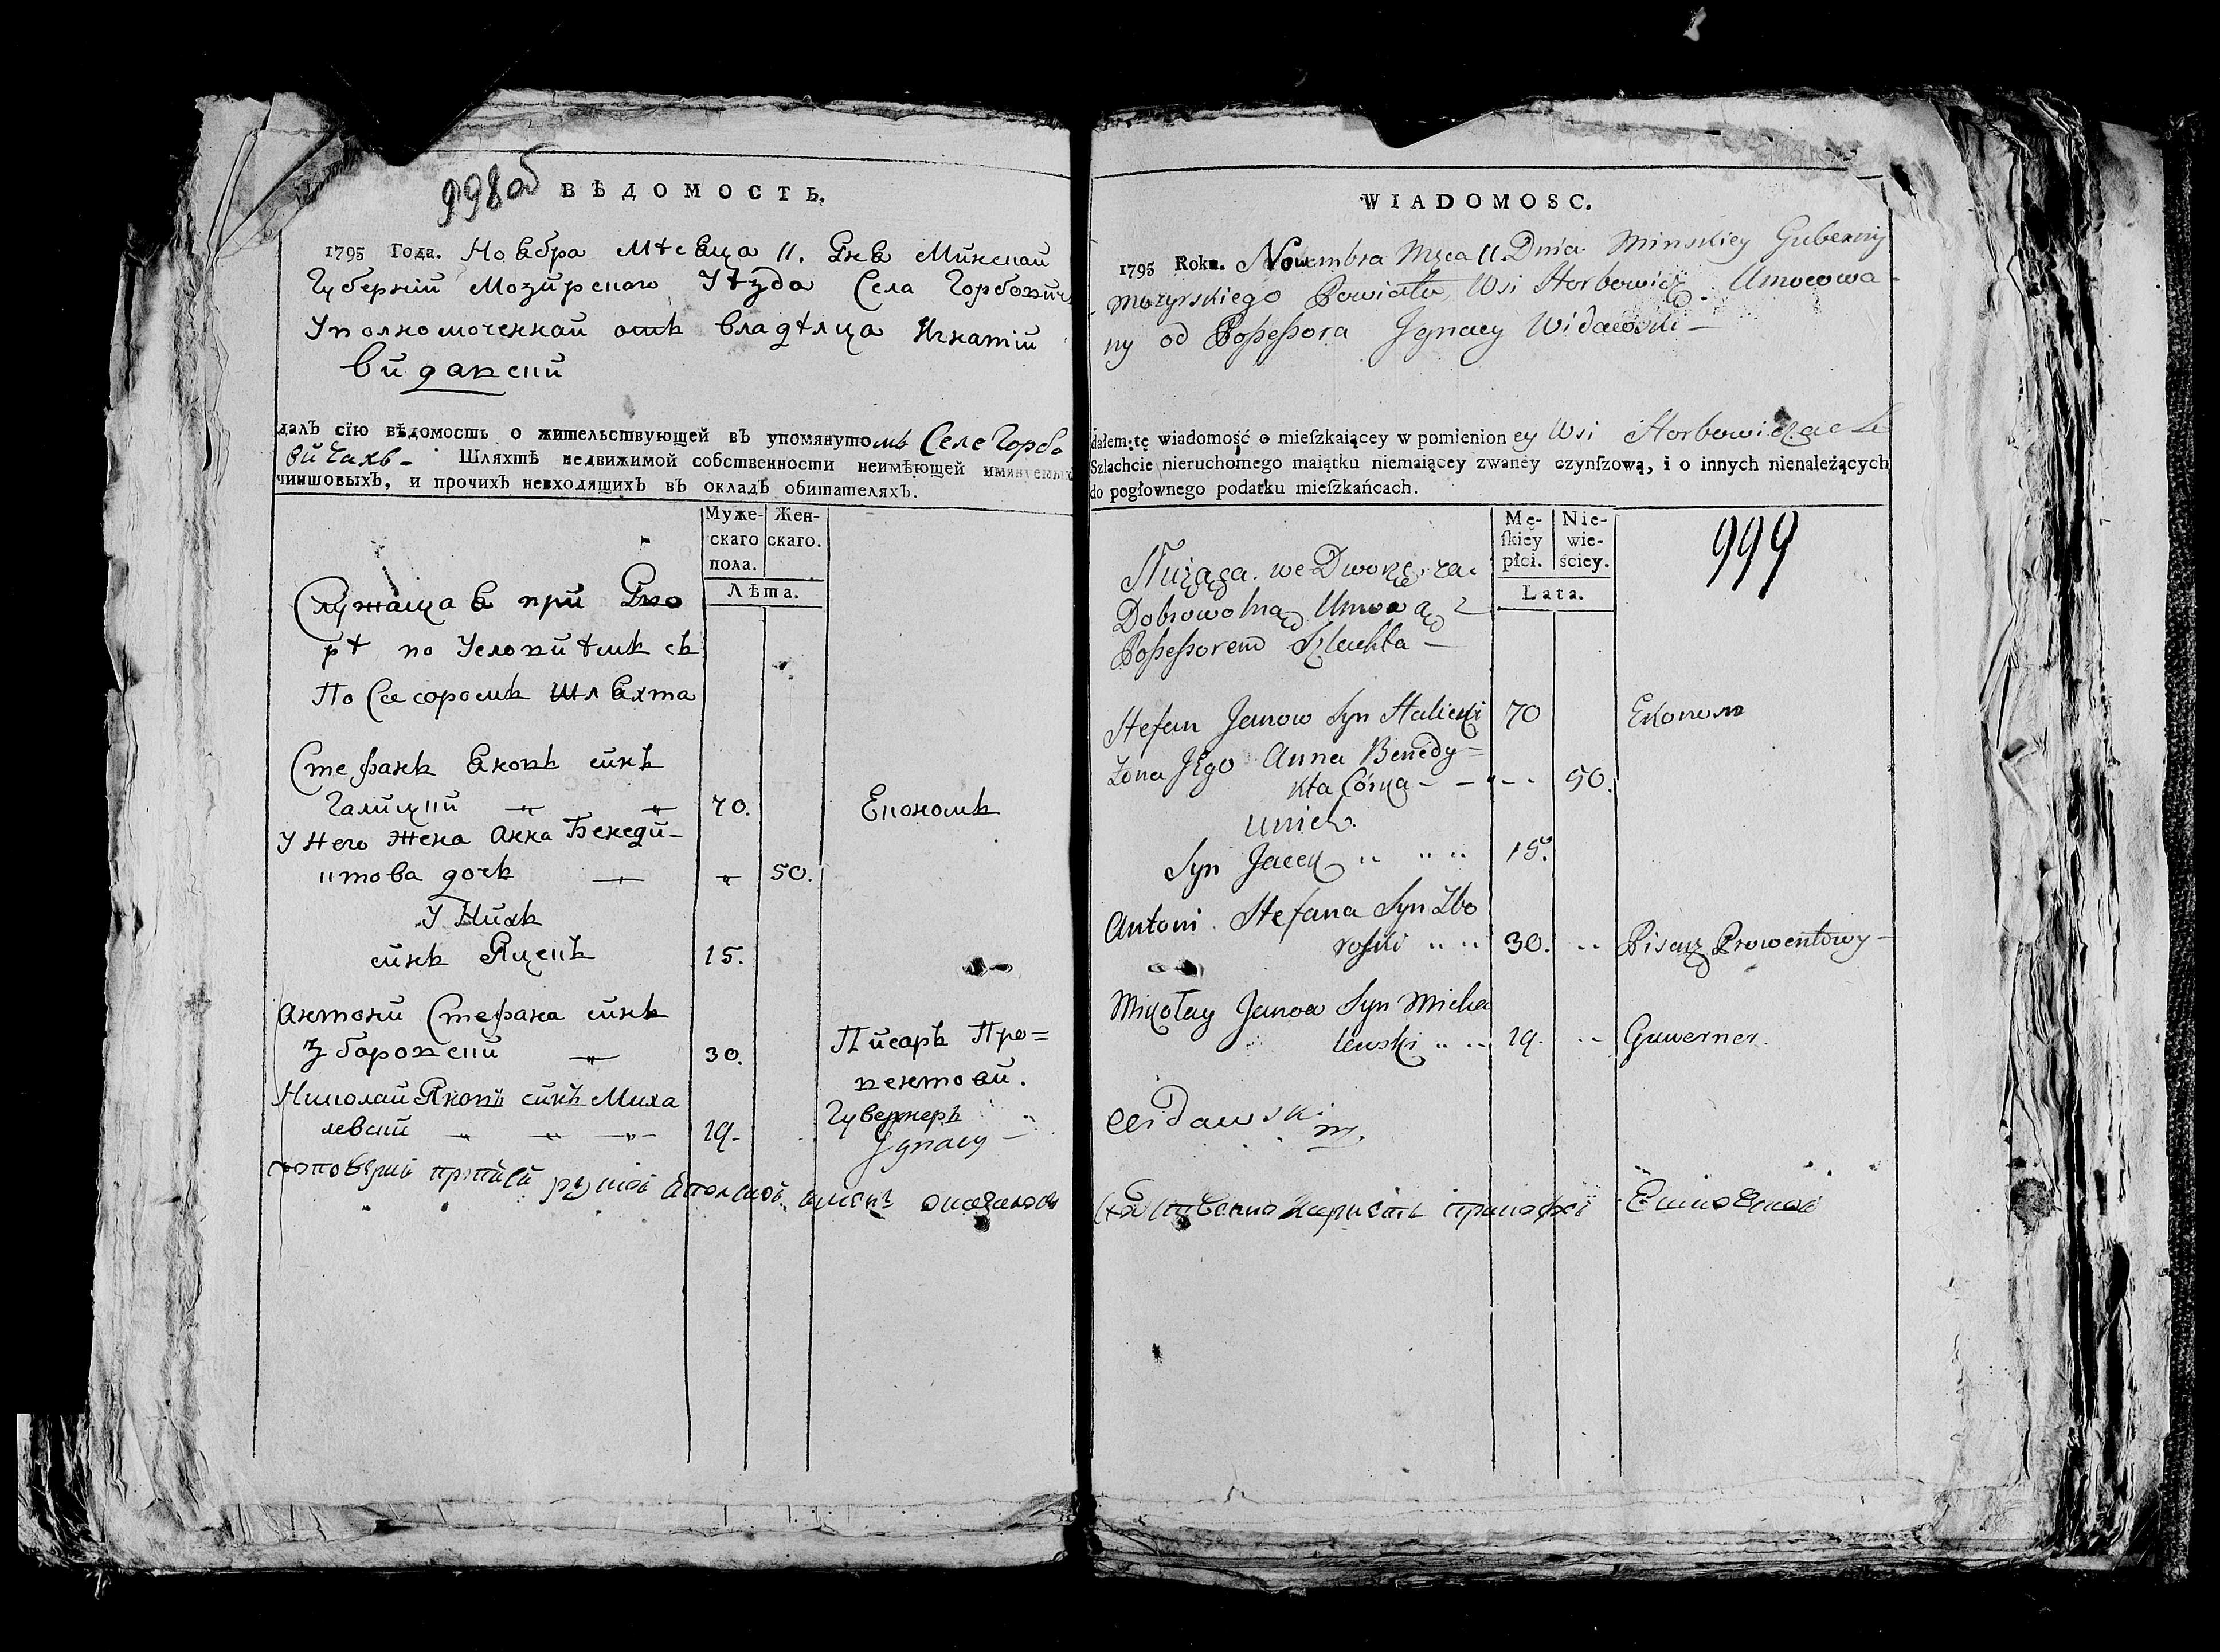 998об
ВѢДОМОСТЬ.
1795 Года. Ноября Мѣсяца 11. Дня Минской
Губерніи Мозирского Уѣзда Села Горбович
Уполномоченной отъ владѣлца Игнатій
Видавский
далъ сїю вѣдомость о жительствующей въ упомянутомъ Селе Горбо
вичахъ - Шляхтѣ недвижимой собственности неимѣющей имянуемыхъ
чиншовыхъ, и прочихъ невходящихъ въ окладъ обитателяхъ.
Муже- Жен-
скаго скаго.
пола.
Лѣта.
Служащая при Дво
рѣ по Условиѣмъ съ
Посесоромъ Шляхта
Стефанъ Яновъ синъ
Галицкий 70. Економъ
У Него Жена Анна Бенеди-
ктова дочъ 50.
У Нихъ
синъ Яцекъ 15.
Антони Стефана синъ
Зборовский 30. Писаръ Про=
вентовий.
Николай Яновъ синъ Миха
левский 19. Губернеръ
Ignacy
WIADOMOSC.
1795 Roku. Nowembra Męca 11 Dnia Minskiey Guberniy
Mozyrskiego Powiatu, Wsi Horbowicz. Umocowa
ny od Possessora Jgnacy Widawski -
dałem tę wiadomość o mieſzkaiącey w pomienioney Wsi Horbowiczach
Szlachcie nieruchomego maiątku niemaiącey zwaney czynſzową, i o innych nienależących
do pogłownego podatku mieſzkańcach.
Mę- Nie-
ſkiey wie-
płci. ściey.
Lata.
999
Służąca we Dworze za
Dobrowolną Umową z
Possessorem Szlachta -
Stefan Janow Syn Halicki 70 Ekonom
Zona Jego Anna Benedy=
kta Córka - - - - 50.
U nich.
Syn Jacek 15.
Antoni Stefana Syn Zbo
roski 30. Pisarz Prowentowy -
Mikołay Janoa Syn Micha
lewski 19. Guwerner.
Widawski